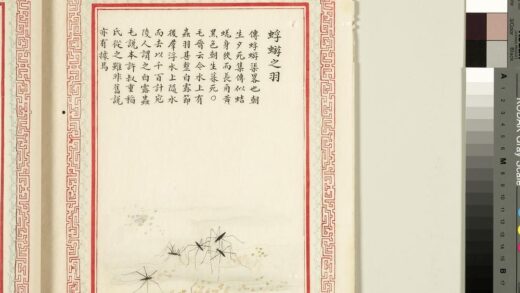 蜉蝣之羽
傳蜉蝣渠畧也朝
生夕死集傳似蛣
蜣身狹而長角黃
黑色朝生暮死〇
毛晉云今水上有
蟲羽甚整白露節
後羣浮水上隨水
而去以千百計宛
陵人謂之白露蟲
毛說本許叔重稲
氏從之雖非舊說
亦有據焉
A
M
B